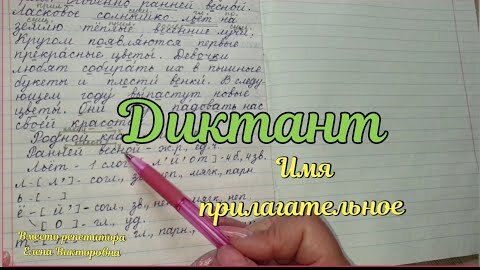 ранней весной.
Ласковое солнышко льёт на
землю тёплые, весенние лучи.
Кругом появляются первые
прекрасные цветы. Девочки
любят собирать их в пышные
букеты и плести венки. В следу-
ющем году вырастут новые
цветы. Они радовать нас
своей красотой
Родной кра
Ранней весной - ж.р., ед.ч.
Льёт - 1 слог, [л' й' о т] - 4б, 4зв.
л - [л'] - согл., зв., неп., мягк., парн
ь - [-]
ё - [й'] - согл., зв., неп., мягк., неп.
[о] - гл., уд.
Диктант
Имя
прилагательное
Вместо репетитора
Елена Викторовна